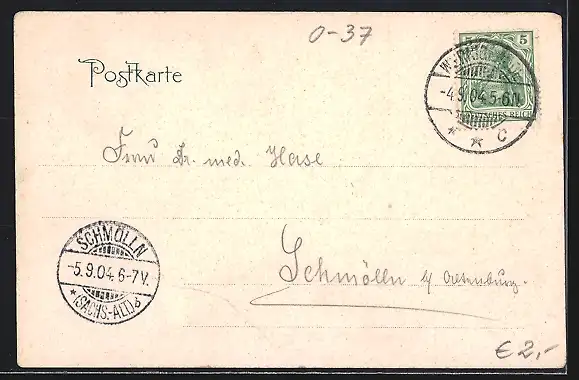 0-37
Postkarte
5 5
-4.9.04.5-6.N.
* * C
DEUTSCHES REICH
Frau Dr. med. Hase
Schmölln
SCHMÖLLN
-5.9.04.6-7V.
*(SACHS.-ALT.)b
€ 2,-